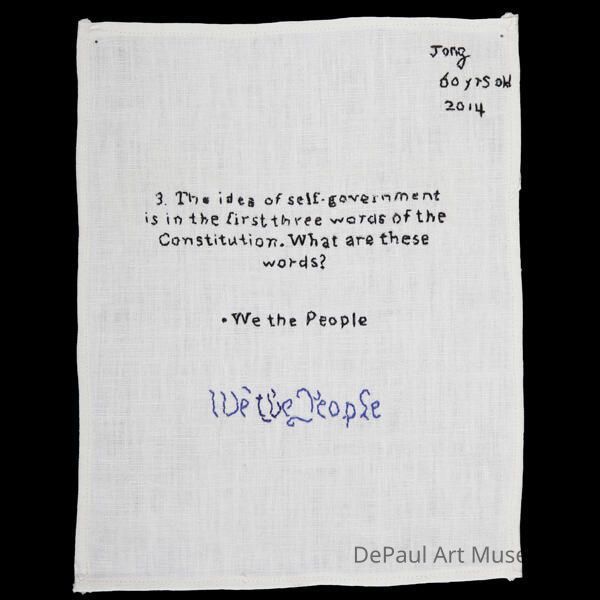 Jong
60 yrs old
2014
3. The idea of self-government
is in the first three words of the
Constitution. What are these
words?
• We the People
We the People
DePaul Art Muse